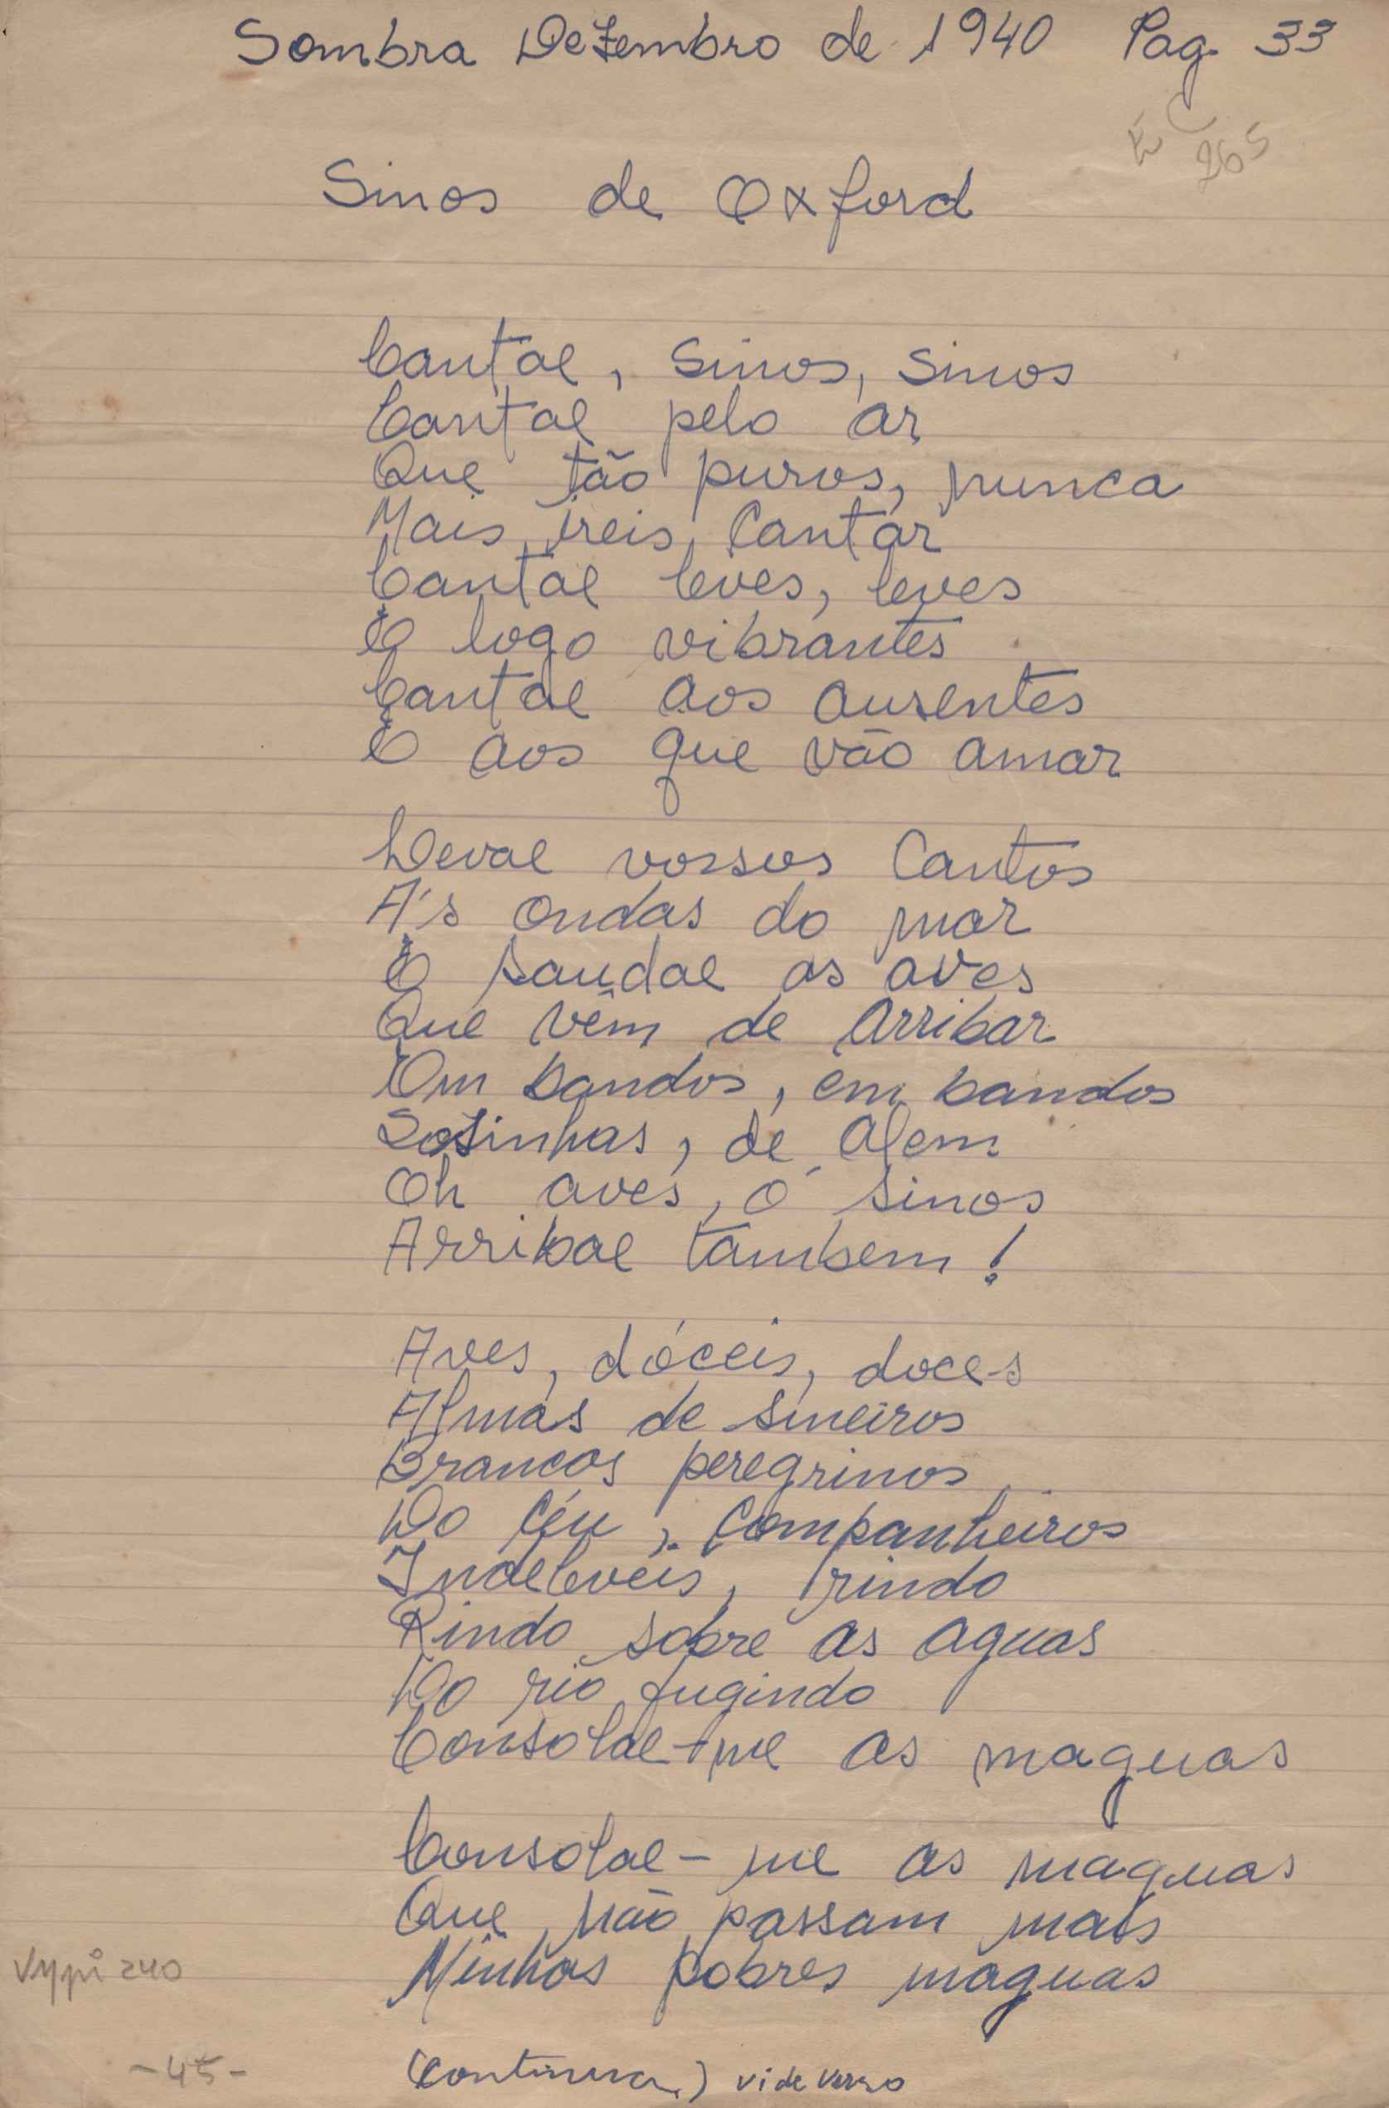 Sombra Dezembro de 1940 Pag. 33
265
Sinos de Oxford
Cantae, sinos, sinos
Cantae pelo ar
Que tão puros, nunca
Mais ireis cantar
Cantae leves, leves
E logo vibrantes
Cantae aos ausentes
E aos que vão amar
Levae vossos cantos
A's ondas do mar
E saudae as aves
Que vêm de arribar
Em bandos, em bandos
Sosinhas, de alem
Oh aves, ó sinos
Arribae tambem!
Aves, dóceis, doces
Almas de sineiros
Brancos peregrinos
Do céu, companheiros
Indeleveis, rindo
Rindo sobre as aguas
Do rio fugindo
Consolae-me as maguas
Consolae-me as maguas
Que não passam mais
Minhas pobres maguas
Vypi 240
-45-
(continua) vide verso